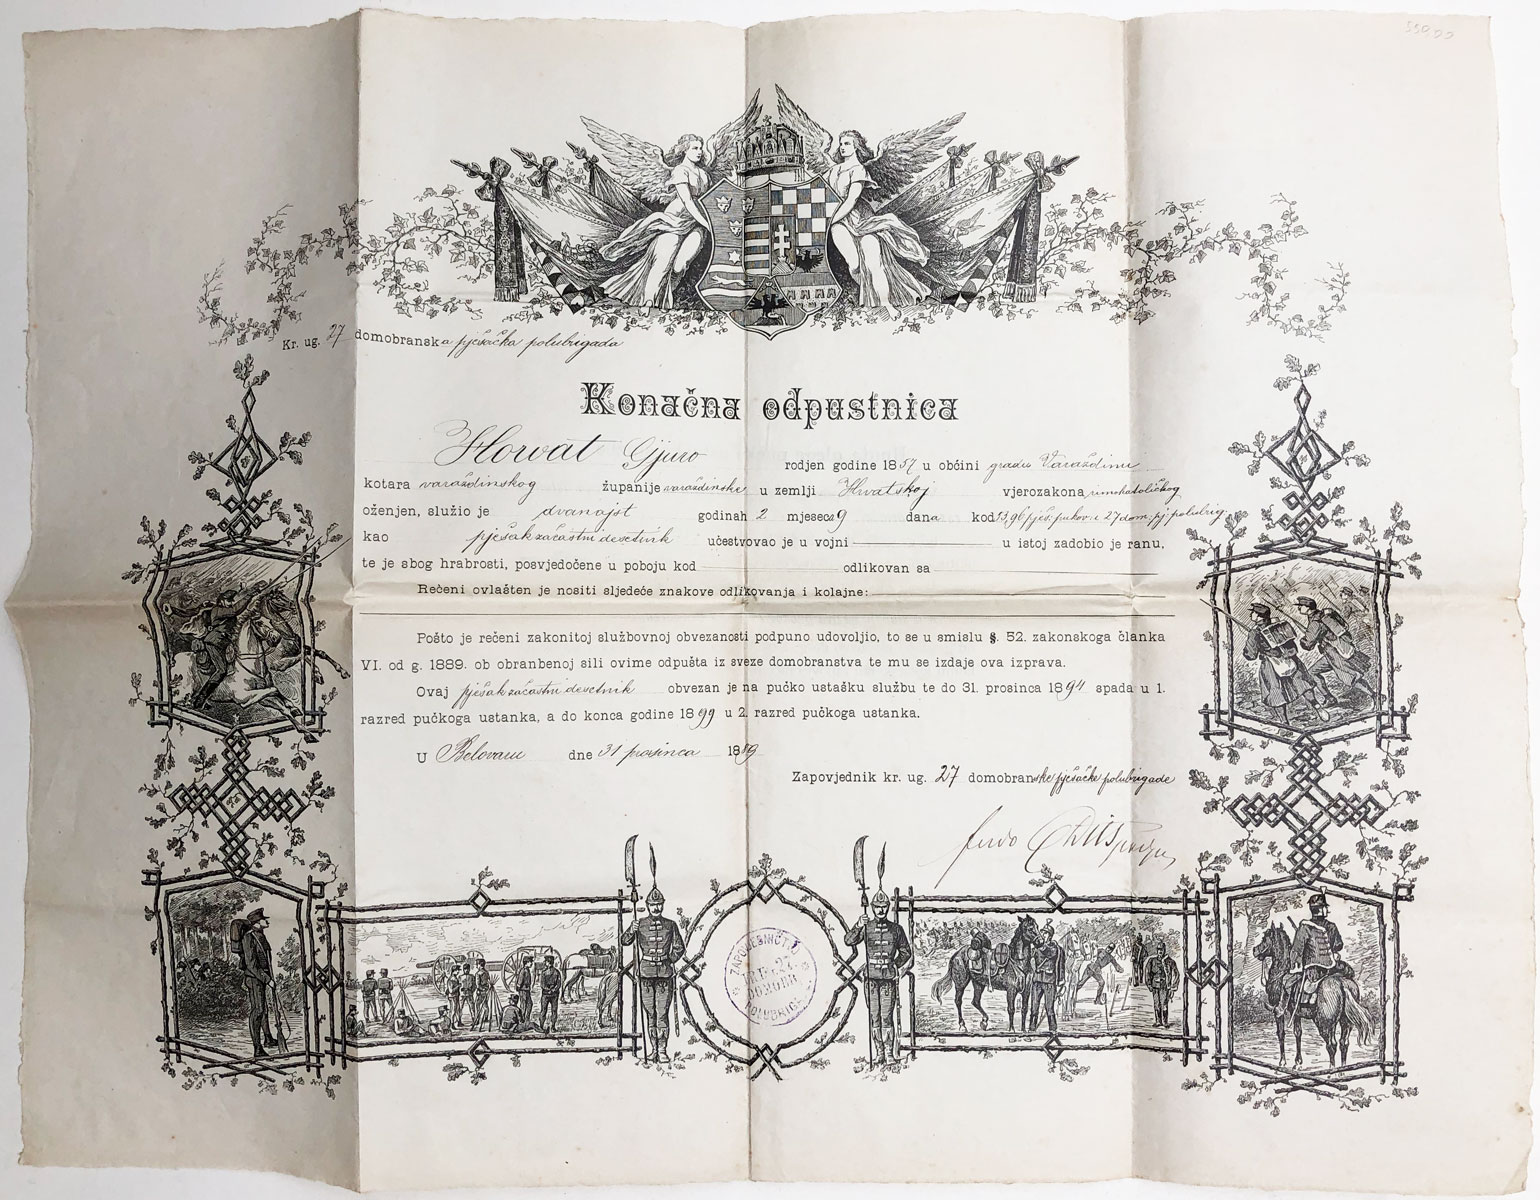 Kr. ug. 27 domobranska pješačka polubrigada
Konačna odpustnica
Horvat Gjuro rodjen godine 1857 u obćini gradu Varaždinu
kotara varaždinskog županije varaždinske u zemlji Hrvatskoj vjerozakona rimokatoličkog
oženjen, služio je dvanajst godinah 2 mjeseca 9 dana kod 53, 96 pješ. pukov. i 27 dom. pj. polubrig.
kao pješak začastni desetnik učestvovao je u vojni u istoj zadobio je ranu,
te je sbog hrabrosti, posvjedočene u poboju kod odlikovan sa
Rečeni ovlašten je nositi sljedeće znakove odlikovanja i kolajne:
Pošto je rečeni zakonitoj službovnoj obvezanosti podpuno udovoljio, to se u smislu §. 52. zakonskoga članka
VI. od g. 1889. ob obranbenoj sili ovime odpušta iz sveze domobranstva te mu se izdaje ova izprava.
Ovaj pješak začastni desetnik obvezan je na pučko ustašku službu te do 31. prosinca 1894 spada u 1.
razred pučkoga ustanka, a do konca godine 1899 u 2. razred pučkoga ustanka.
U Belovaru dne 31 prosinca 1889
Zapovjednik kr. ug. 27 domobranske pješačke polubrigade